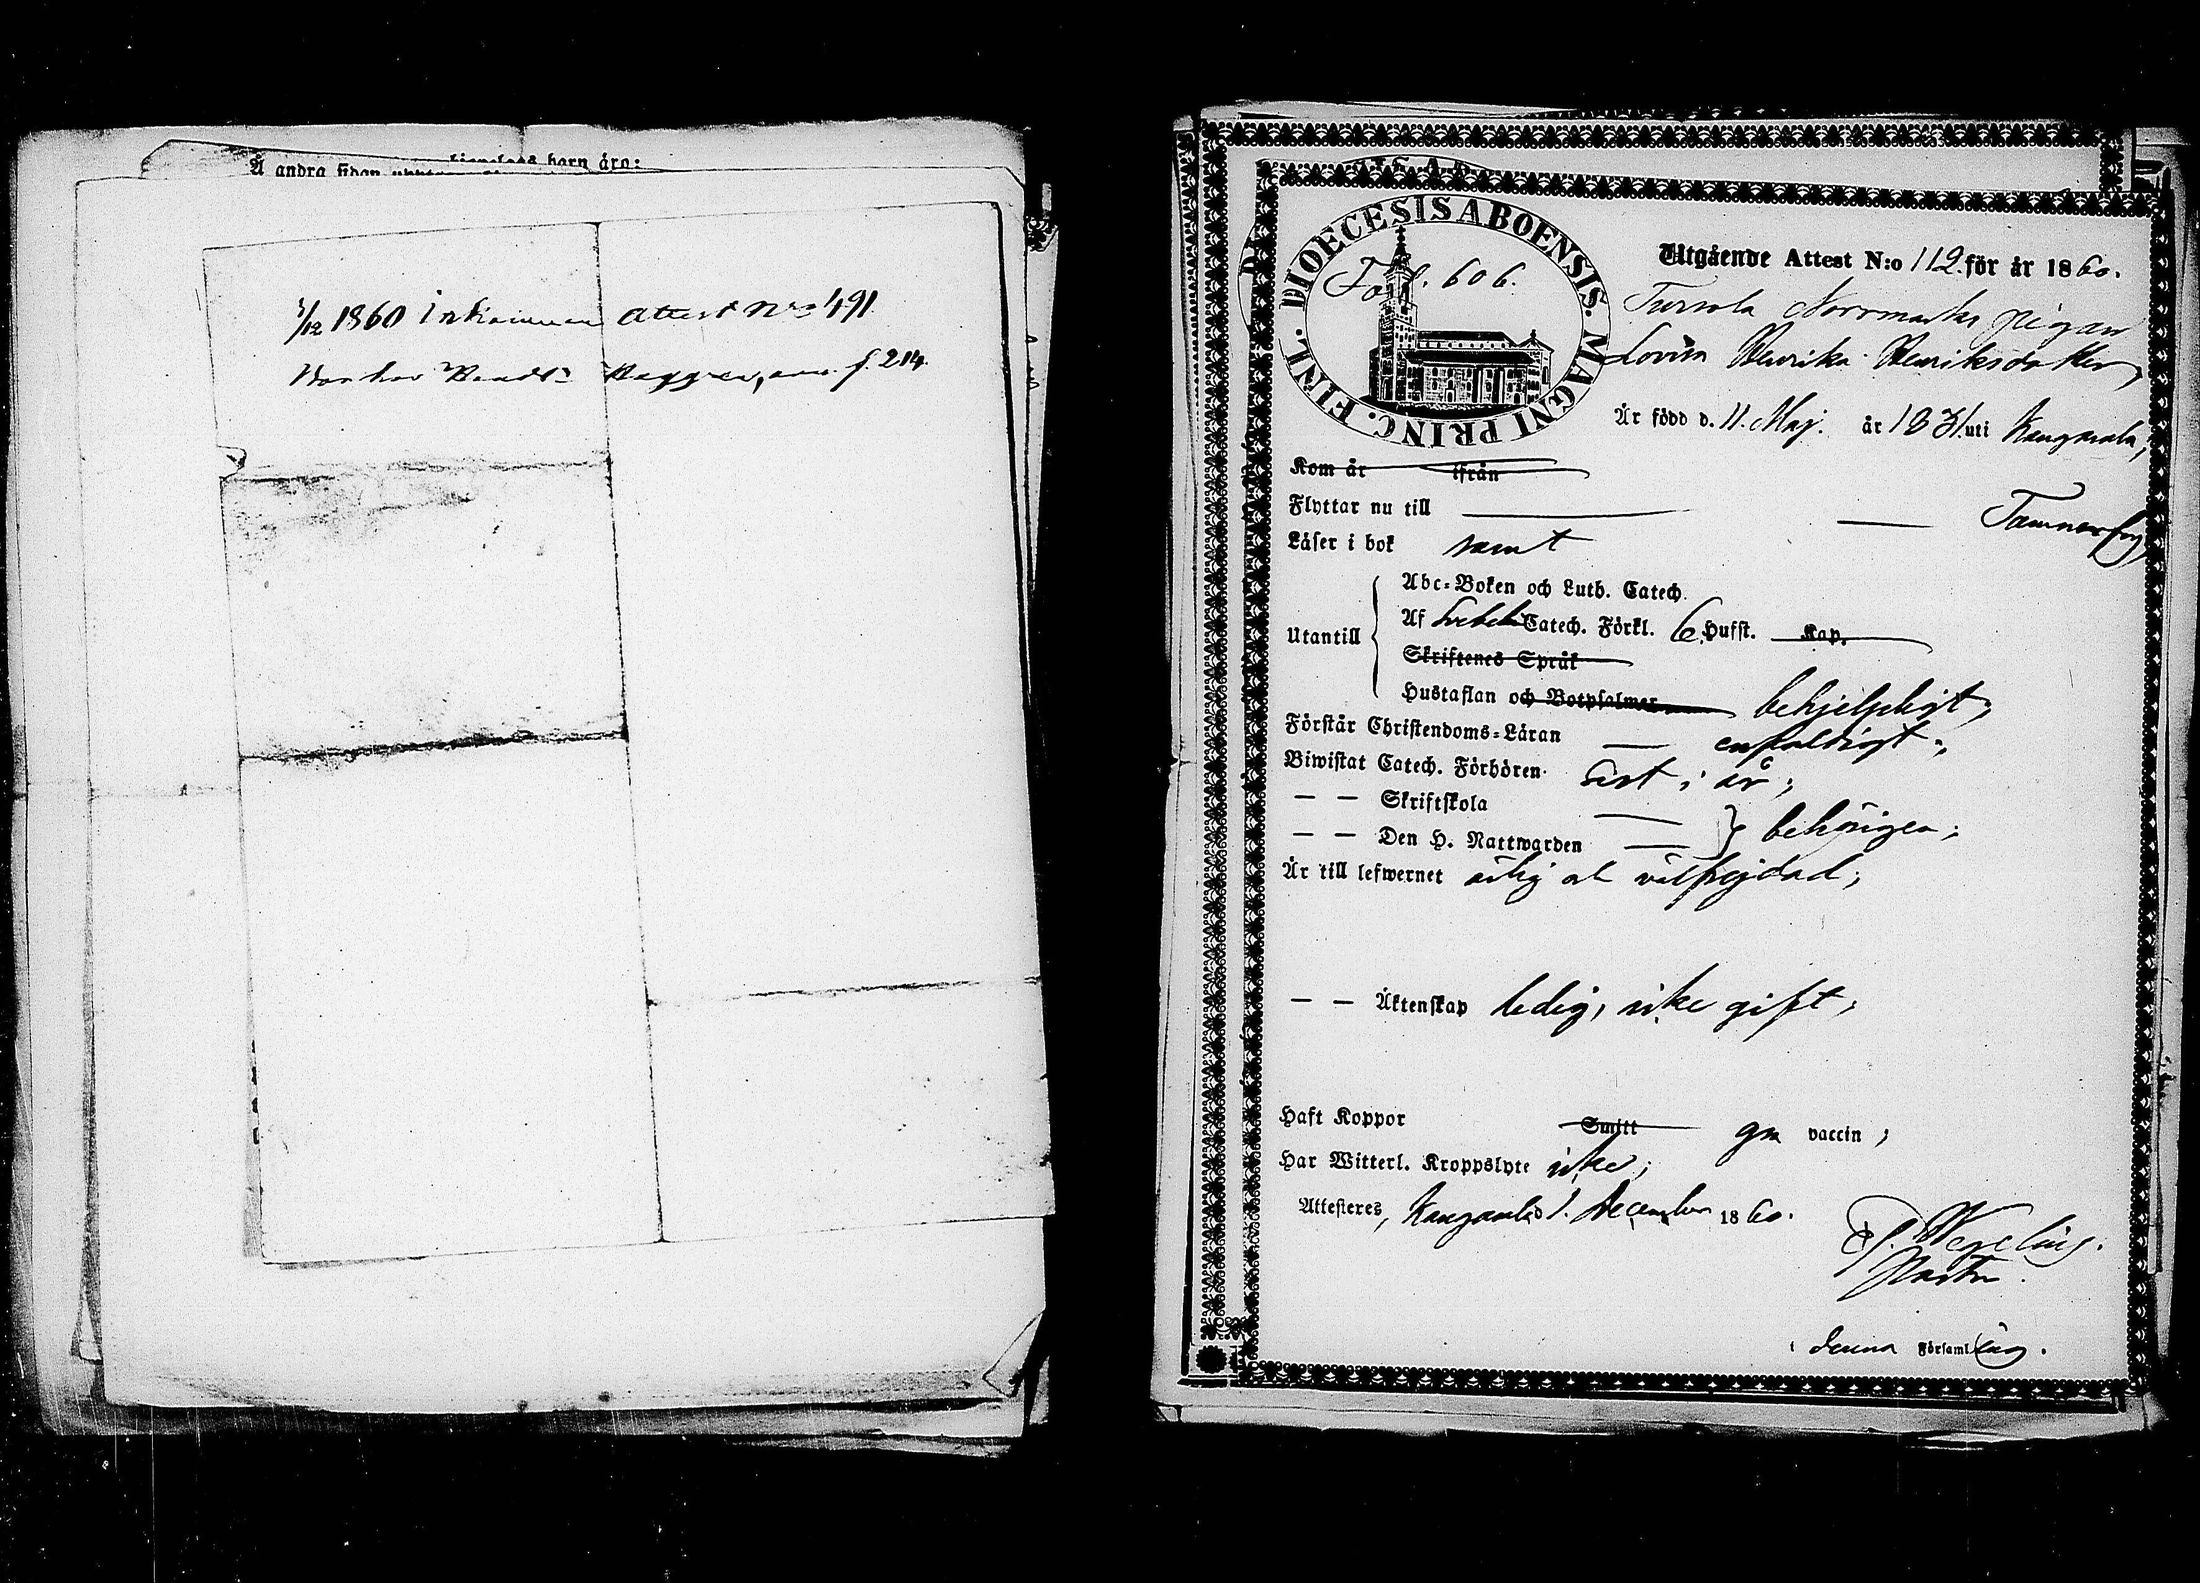 Å andra sidan
barn äro:
3/12 1860 Inkommen Attest No 491.
f. 214.
DIOECESIS ABOENSIS. MAGNI PRINC. FINL.
Fol. 606.
Utgående Attest N:o 112 för år 1860.
Tursola Norrmarks pigan
Lovisa Henrika Henriksdotter,
Är född d. 11. Maj. år 1831. uti Kangasala,
Kom år ifrån
Flyttar nu till Tammerfors
Läser i bok samt
Utantill
Abc-Boken och Luth. Catech.
Af Svebelii Catech. Förkl. 6 Hufst. Kap.
Skriftenes Språk
Hustaflan och Botpsalmer behjelpligt;
Förstår Christendoms-Läran enfaldigt;
Biwistat Catech. Förhören sist i år;
— — Skriftskola
— — Den H. Nattwarden behörigen;
Är till lefwernet ärlig och välfrejdad;
— — Äktenskap ledig, icke gift;
Haft Koppor Smitt gm vaccin;
Har Witterl. Kroppslyte icke;
Attesteres, Kangasala d 1. December 1860.
Wegelius.
Pastor.
i denna Församling.